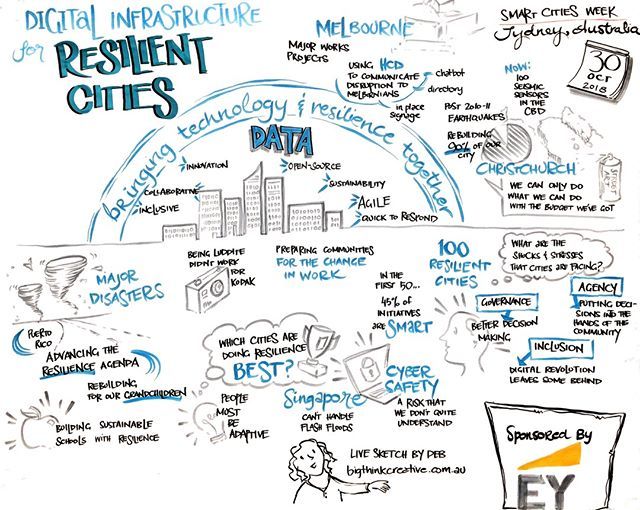 DIGITAL INFRASTRUCTURE
for RESILIENT
CITIES
MELBOURNE
MAJOR WORKS
PROJECTS
USING HCD
TO COMMUNICATE
DISRUPTION TO
MELBURNIANS
chatbot
directory
in place
signage
SMART CITIES WEEK
Sydney, Australia
30
OCT
2018
NOW:
100
SEISMIC
SENSORS
IN THE
CBD
POST 2010-11
EARTHQUAKES
REBUILDING
90% OF OUR
CITY
CHRISTCHURCH
WE CAN ONLY DO
WHAT WE CAN DO
WITH THE BUDGET WE'VE GOT
bringing technology & resilience together
DATA
INNOVATION
COLLABORATIVE
INCLUSIVE
OPEN-SOURCE
SUSTAINABILITY
AGILE
QUICK TO RESPOND
MAJOR
DISASTERS
BEING LUDDITE
DIDN'T WORK
FOR
KODAK
PREPARING COMMUNITIES
FOR THE CHANGE
IN WORK
IN THE
FIRST 50...
45% OF
INITIATIVES
ARE SMART
100
RESILIENT
CITIES
WHAT ARE THE
SHOCKS & STRESSES
THAT CITIES ARE FACING?
GOVERNANCE
BETTER DECISION
MAKING
AGENCY
PUTTING DECI-
SIONS INTO THE
HANDS OF THE
COMMUNITY
INCLUSION
DIGITAL REVOLUTION
LEAVES SOME BEHIND
PUERTO
RICO
ADVANCING THE
RESILIENCE AGENDA
REBUILDING
FOR OUR GRANDCHILDREN
BUILDING SUSTAINABLE
SCHOOLS WITH RESILIENCE
WHICH CITIES ARE
DOING RESILIENCE
BEST?
PEOPLE
MUST
BE
ADAPTIVE
Singapore
CAN'T HANDLE
FLASH FLOODS
CYBER
SAFETY
A RISK THAT
WE DON'T QUITE
UNDERSTAND
LIVE SKETCH BY DEB
bigthinkcreative.com.au
Sponsored By
EY